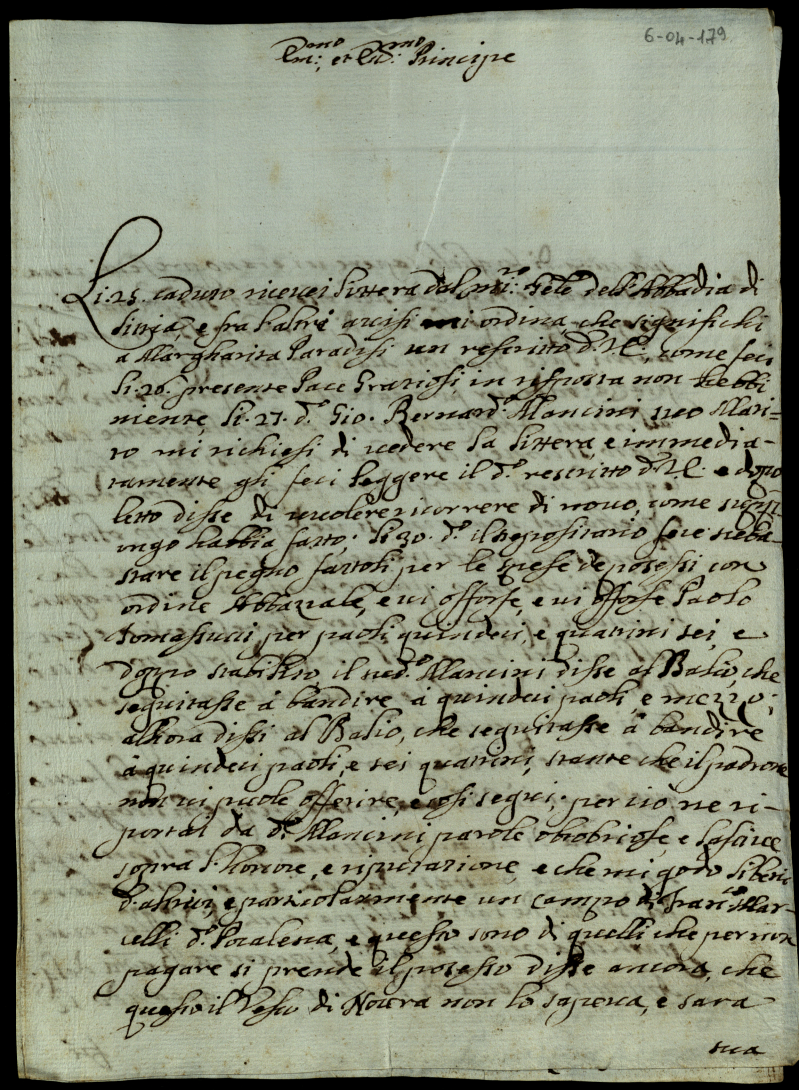 6-04-179
Em:mo et Rd:mo Principe
Li.25. caduto ricevei littera dal mi:ro Gele dell'Abbadia di
Sitria, e fra l'altre avisi mi ordina, che significhi
a Margharita Paradisi un rescritto d.V.E. come feci
li.26. presente Pace Gratiosi, in risposta non hebbi
niente, li.27. d.o Gio. Bernard.o Mancini suo Mari=
to mi richiesi di vedere la littera, e immedia-
tamente gli feci leggere il d.o rescritto d.V.E. e dopo
letto disse di volere ricorrere di novo, come suppo
ngo habbia fatto; li 30. d.o il depositario fece suba-
stare il pegno fattoli per le spese de possessi con
ordine Abbatiale, e vi offerse, e vi offerse Paolo
Tomassucci per paoli quindeci, e quattrini sei, e
doppo stabilito, il sud.o Mancini disse al Balio, che
seguitasse à bandire à quindeci paoli, e mezzo;
alhora dissi al Balio, che seguitasse à bandire
à quindeci paoli, e sei quatrini, stante che il padrone
non vi puole offerire, e così seguì; per ciò ne ri-
portai da d.o Mancini parole obrobriose, e lascive
sopra l'honore, e riputatione, e che mi godo li beni
d'altrui, e particolarmente un campo di Fran.co Mar-
celli d.o Pocalena, e questo sono di quelli che per non
pagare si prende il possesso disse ancora, che
questo il Vesco di Nocera non lo sapeva, e sara
sua